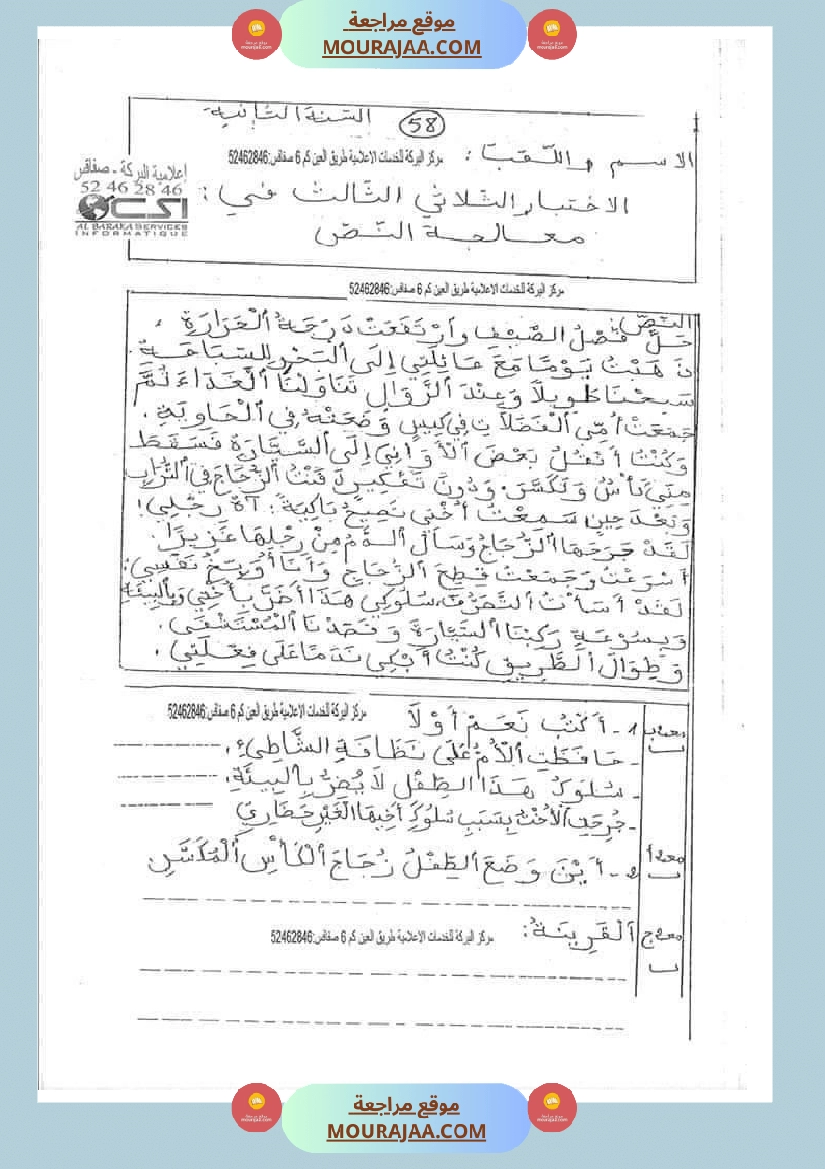 موقع مراجعة
MOURAJAA.COM
السنة الثانية
58
الاسم واللقب:
مركز البركة للخدمات الاعلامية طريق العين كم 6 صفاقس:52462846
إعلامية البركة - صفاقس
52 46 28 46
CSI
AL BARAKA SERVICES
INFORMATIQUE
الاختبار الثلاثي الثالث في:
معالجة النص
مركز البركة للخدمات الاعلامية طريق العين كم 6 صفاقس:52462846
النص:
حَلَّ فَصْلُ الصَّيْفِ وَأرْتَفَعَتْ دَرَجَةُ ألْحَرَارَةِ،
ذَهَبْتُ يَوْمًا مَعَ عَائِلَتِي إِلَى ألبَحْرِ لِلسِّبَاحَةِ.
سَبَحْنَا طَوِيلاً وَعِنْدَ ألزَّوَالِ تَنَاوَلْنَا ألْغَدَاءَ ثُمَّ
جَمَعَتْ أُمِّي ألْفَضَلاَتِ فِي كِيسٍ وَضَعَتْهُ فِي ألْحَاوِيَةِ.
وَكُنْتُ أَنْقُلُ بَعْضَ ألأَوَانِي إِلَى ألسَّيَّارَةِ فَسَقَطَ
مِنِّي كَأْسٌ وَتَكَسَّرَ. وَدُونَ تَفْكِيرٍ دَفَنْتُ ألزُّجَاجَ فِي ألتُّرَابِ
وَبَعْدَ حِينٍ سَمِعْتُ أُخْتِي تَصِيحُ بَاكِيَةً: آهْ رِجْلِي!
لَقَدْ جَرَحَهَا ألزُّجَاجُ وَسَالَ ألدَّمُ مِنْ رِجْلِهَا غَزِيرًا.
أَسْرَعْتُ وَجَمَعْتُ قِطَعَ ألزُّجَاجِ وَأَنَا أُوَبِّخُ نَفْسِي:
لَقَدْ أَسَأْتُ ألتَّصَرُّفَ، سُلُوكِي هَذَا أَضَرَّ بِأُخْتِي وَبِالْبِيئَةِ
وَبِسُرْعَةٍ رَكِبْنَا ألسَّيَّارَةَ وَقَصَدْنَا ألْمُسْتَشْفَى.
وَطِوَالَ ألطَّرِيقِ كُنْتُ أَبْكِي نَدَمًا عَلَى فِعْلَتِي.
مركز البركة للخدمات الاعلامية طريق العين كم 6 صفاقس:52462846
1- أَكْتُبُ نَعَمْ أَوْ لاَ
- حَافَظَتِ ألأُمُّ عَلَى نَظَافَةِ الشَّاطِئِ.
- سُلُوكُ هَذَا الطِّفْلِ لاَ يُضِرُّ بِالْبِيئَةِ.
- جُرِحَتِ ألأُخْتُ بِسَبَبِ سُلُوكِ أَخِيهَا الْغَيْرِ حَضَارِيّ
2- أَيْنَ وَضَعَ ألطِّفْلُ زُجَاجَ ألْكَأْسِ ألْمُكَسَّرِ
ألْقَرِينَةُ:
مركز البركة للخدمات الاعلامية طريق العين كم 6 صفاقس:52462846
موقع مراجعة
MOURAJAA.COM